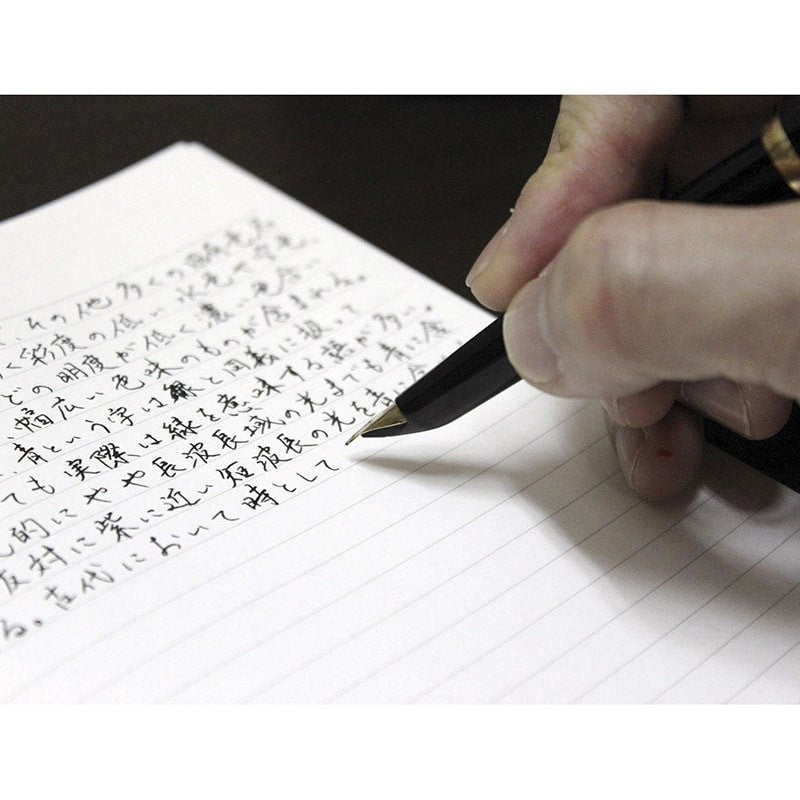 、その他多くの
く彩度の低い水色や空色、
どの明度が低く濃い色合い
幅広い色味のものが含まれる。
青という字は緑と同義に扱って
ても実際は緑を意味する語が多い。
的にやや長波長域の光までも青に含
反対に紫に近い短波長の光を青に
る。古代において時として